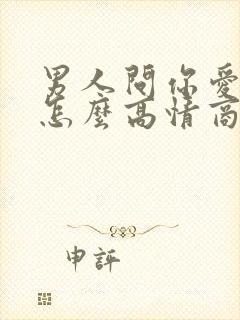 男人問你愛
怎麼高情商
申評